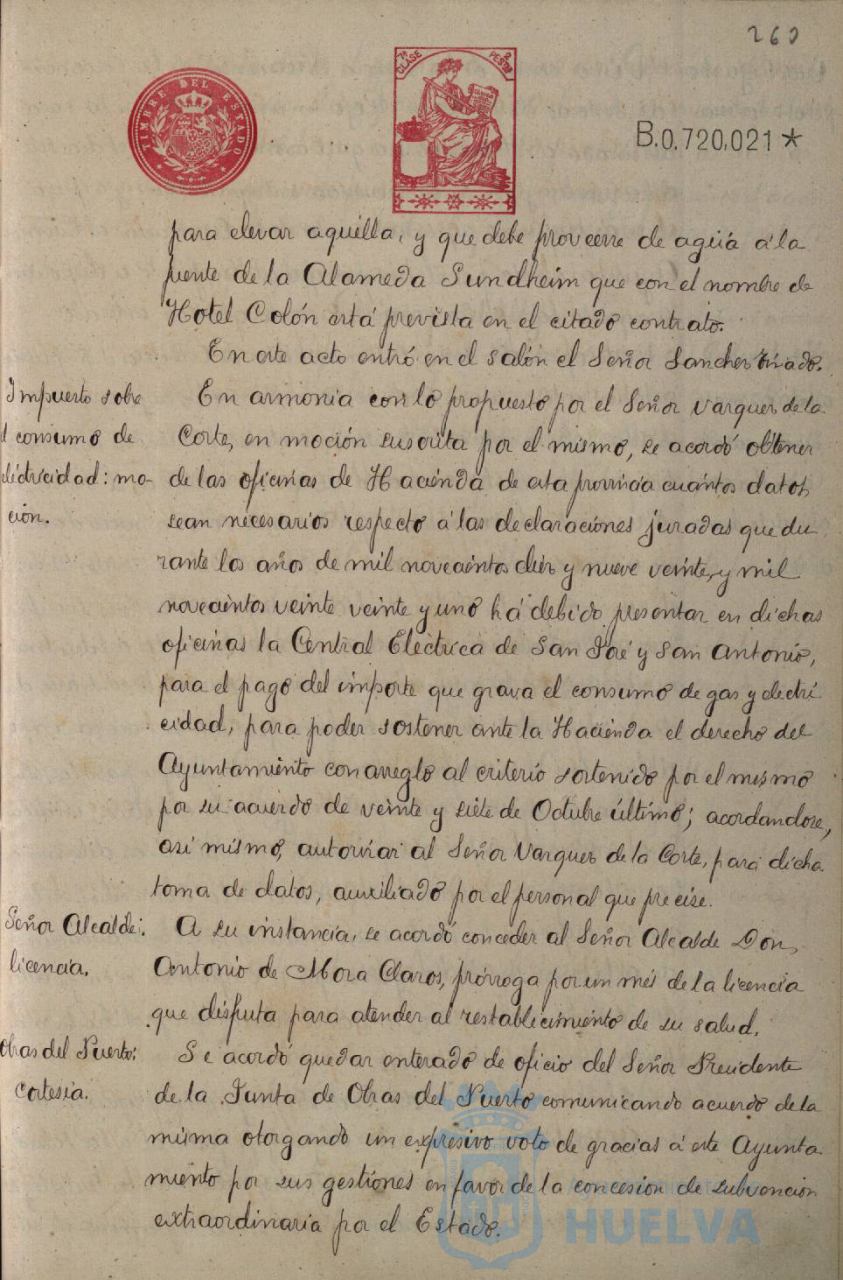 260
TIMBRE DEL ESTADO
7ª CLASE
2 PESETAS
B.0,720,021*
para elevar aquella, y que debe proveerse de agua á la
fuente de la Alameda Sundheim que con el nombre de
Hotel Colón está prevista en el citado contrato.
En este acto entró en el salón el Señor Sanchez
Impuesto sobre
el consumo de
electricidad: mo-
ción.
En armonia con lo propuesto por el Señor Vazquez de la
Corte, en moción suscrita por el mismo, se acordó obtener
de las oficinas de Hacienda de esta provincia cuántos datos
sean necesarios respecto á las declaraciones juradas que du
rante los años de mil novecientos diez y nueve veinte, y mil
novecientos veinte veinte y uno há debido presentar en dichas
oficinas la Central Eléctrica de San José y San Antonio,
para el pago del importe que grava el consumo de gas y electri
cidad, para poder sostener ante la Hacienda el derecho del
Ayuntamiento con arreglo al criterio sostenido por el mismo
por su acuerdo de veinte y siete de Octubre último; acordandose,
asi mismo, autorizar al Señor Vazquez de la Corte, para dicha
toma de datos, auxiliado por el personal que precise.
Señor Alcalde:
licencia.
A su instancia, se acordó conceder al Señor Alcalde Don,
Antonio de Mora Claros, prórroga por un més de la licencia
que disfruta para atender al restablecimiento de su salud.
Obras del Puerto:
Cortesia.
Se acordó quedar enterado de oficio del Señor Presidente
de la Junta de Obras del Puerto comunicando acuerdo de la
misma otorgando un expresivo voto de gracias á este Ayunta
miento por sus gestiones en favor de la concesion de subvencion
extraordinaria por el Estado.
HUELVA